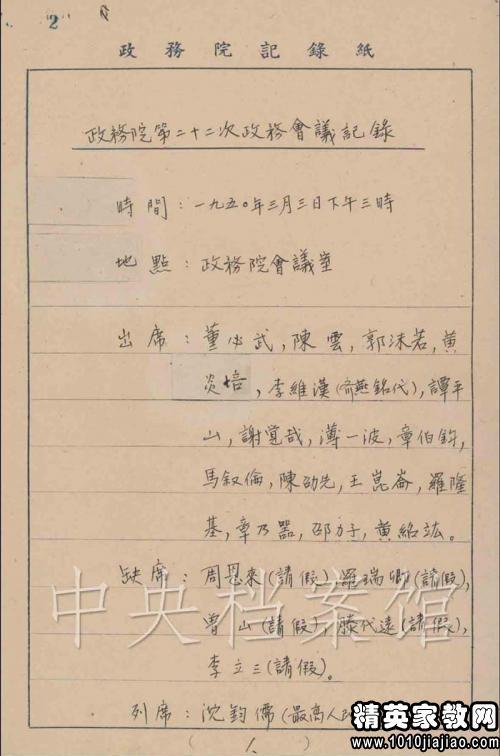 2
政務院記錄紙
政務院第二十二次政務會議記錄
時間：一九五〇年三月三日下午三時
地點：政務院會議室
出席：董必武，陳雲，郭沫若，黃
炎培，李維漢(齊燕銘代)，譚平
山，謝覺哉，薄一波，章伯鈞，
馬叙倫，陳劭先，王崑崙，羅隆
基，章乃器，邵力子，黃紹竑。
缺席：周恩來(請假)，羅瑞卿(請假)，
曾山(請假)，滕代遠(請假)，
李立三(請假)。
列席：沈鈞儒(最高人
中央档案馆
精英家教网
www.1010jiajiao.com